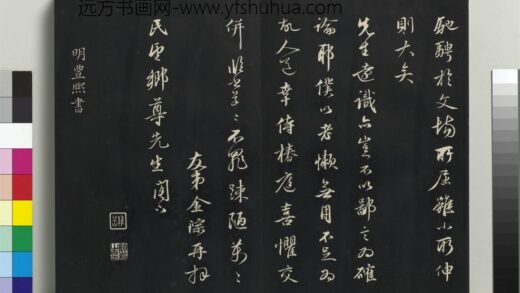 远方书画网-www.yfshuhua.com
馳騁於文場所屈雖小所伸
則大矣
先生遠識亦豈不以鄙言為確
論耶僕以老懶無用不足為
故人道幸侍椿庭喜懼交
併臨楮草草不罪踈陋萬萬
友弟金琮再拜
民望鄉尊先生閣下
明豐熙書